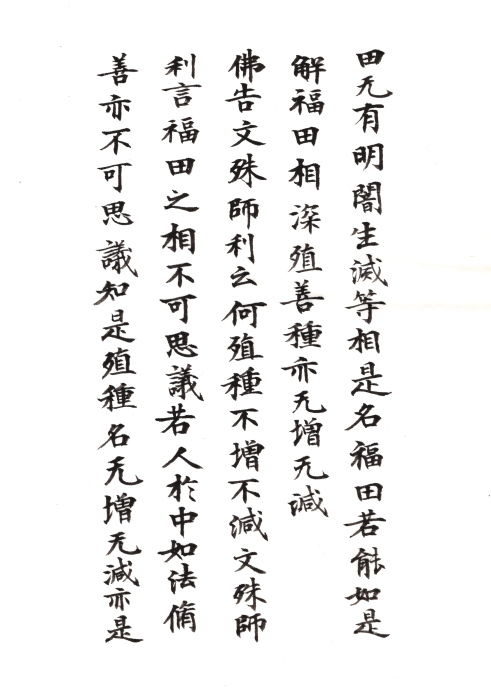 田无有明闇生滅等相是名福田若能如是
解福田相深殖善種亦无增无減
佛告文殊師利云何殖種不增不減文殊師
利言福田之相不可思議若人於中如法脩
善亦不可思議知是殖種名无增无減亦是